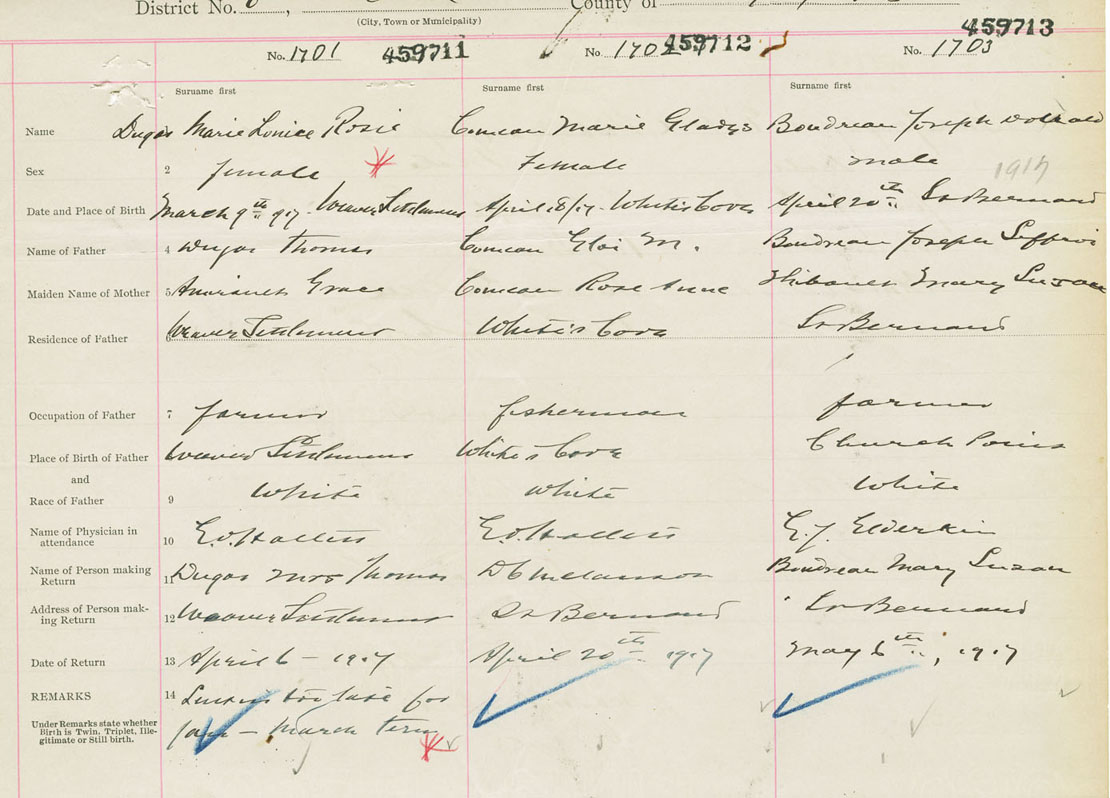 District No. County of
(City, Town or Municipality)
No. 1701 459711 No. 1702 459712 No. 1703 459713
Suruame first Surname first Surname first
Name Dugas Marie Louise Rosie Comeau Marie Gladys Boudreau Joseph
Sex 2 female Female male 1917
Date and Place of Birth March 9th 1917 Weaver Settlement April 18/17 White's Cove April 20th St Bernard
Name of Father 4 Dugas Thomas Comeau Eloi M. Boudreau Joseph Jeffroi
Maiden Name of Mother 5 Amirault Grace Comeau Rose Anne Thibault Mary Suzan
Residence of Father 6 Weaver Settlement White's Cove St Bernard
Occupation of Father 7 farmer fisherman farmer
Place of Birth of Father Weaver Settlement White's Cove Church Point
and
Race of Father 9 White White White
Name of Physician in
attendance 10 E. J. Elderkin
Name of Person making
Return 11 Dugas Mrs Thomas D C Melanson Boudreau Mary Suzan
Address of Person mak-
ing Return 12 Weaver Settlement St Bernard St Bernard
Date of Return 13 April 6 - 1917 April 20th 1917 May 6th, 1917
REMARKS 14 too late for
Under Remarks state whether
Birth is Twin, Triplet, Ille-
gitimate or Still birth.
Jan - March term